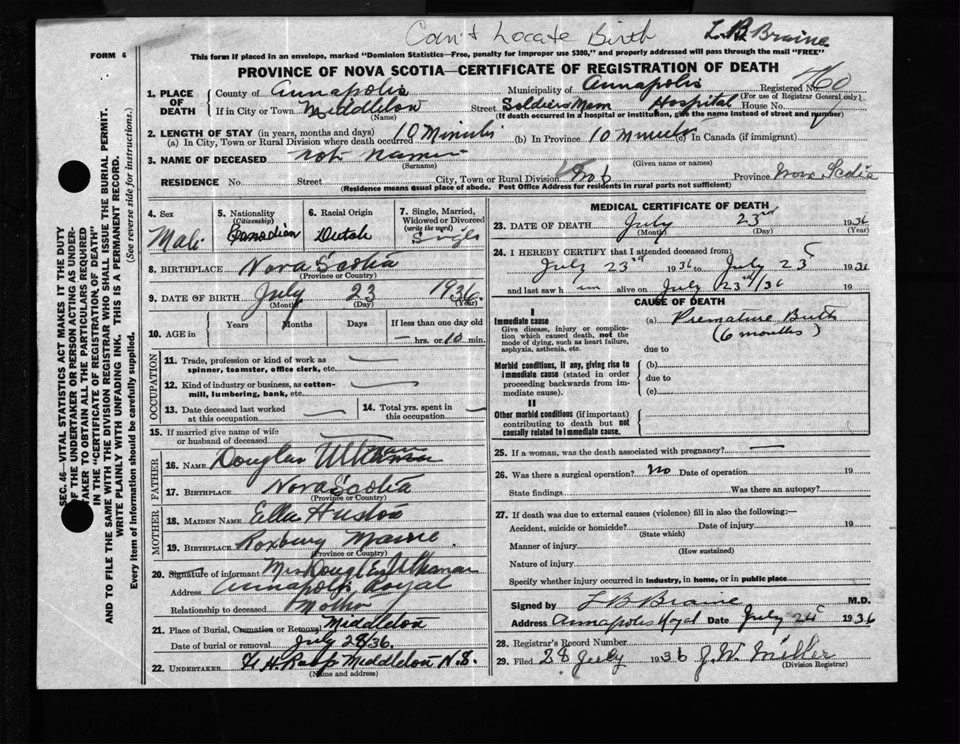 Can't Locate Birth
L. B. Braine
FORM 6
This form if placed in an envelope, marked "Dominion Statistics—Free, penalty for improper use $300," and properly addressed will pass through the mail "FREE"
PROVINCE OF NOVA SCOTIA—CERTIFICATE OF REGISTRATION OF DEATH
1. PLACE OF DEATH
County of Annapolis Municipality of Annapolis Registered No. 760
(For use of Registrar General only)
If in City or Town Middleton Street Soldiers Mem Hospital House No.
(Name) (If death occurred in a hospital or institution, give the name instead of street and number)
2. LENGTH OF STAY (in years, months and days)
(a) In City, Town or Rural Division where death occurred 10 Minutes (b) In Province 10 minutes (c) In Canada (if immigrant)
3. NAME OF DECEASED not named
(Surname) (Given name or names)
RESIDENCE No. Street City, Town or Rural Division No 6 Province Nova Scotia
(Residence means usual place of abode. Post Office Address for residents in rural parts not sufficient)
4. Sex Male
5. Nationality (Citizenship) Canadian
6. Racial Origin Dutch
7. Single, Married, Widowed or Divorced (write the word) Single
8. BIRTHPLACE Nova Scotia
(Province or Country)
9. DATE OF BIRTH July 23 1936.
(Month) (Day) (Year)
10. AGE in Years Months Days If less than one day old
— hrs. or 10 min.
OCCUPATION
11. Trade, profession or kind of work as spinner, teamster, office clerk, etc. —
12. Kind of industry or business, as cotton-mill, lumbering, bank, etc. —
13. Date deceased last worked at this occupation —
14. Total yrs. spent in this occupation —
15. If married give name of wife or husband of deceased —
FATHER
16. NAME Douglas
17. BIRTHPLACE Nova Scotia
(Province or Country)
MOTHER
18. MAIDEN NAME Ella
19. BIRTHPLACE Roxbury Maine.
(Province or Country)
20. Signature of informant Mrs
Address Annapolis Royal
Relationship to deceased Mother
21. Place of Burial, Cremation or Removal Middleton
Date of burial or removal July 28/36.
22. UNDERTAKER Middleton N.S.
(Name and address)
MEDICAL CERTIFICATE OF DEATH
23. DATE OF DEATH July 23rd 1936
(Month) (Day) (Year)
24. I HEREBY CERTIFY that I attended deceased from:
July 23rd 1936 to July 23 1936
and last saw h im alive on July 23rd/36 19
CAUSE OF DEATH
I
Immediate cause
Give disease, injury or complication which caused death, not the mode of dying, such as heart failure, asphyxia, asthenia, etc.
(a) Premature Birth
(6 months)
due to
Morbid conditions, if any, giving rise to immediate cause (stated in order proceeding backwards from immediate cause).
(b)
due to
(c)
II
Other morbid conditions (if important) contributing to death but not causally related to immediate cause.
25. If a woman, was the death associated with pregnancy? —
26. Was there a surgical operation? No Date of operation 19
State findings Was there an autopsy?
27. If death was due to external causes (violence) fill in also the following:—
Accident, suicide or homicide? Date of injury 19
(State which)
Manner of injury
(How sustained)
Nature of injury
Specify whether injury occurred in industry, in home, or in public place
Signed by L B Braine M.D.
Address Annapolis Royal Date July 1936
28. Registrar's Record Number
29. Filed 28 July 1936 J. W. Miller
(Division Registrar)
SEC. 46—VITAL STATISTICS ACT MAKES IT THE DUTY
OF THE UNDERTAKER OR PERSON ACTING AS UNDER-
TAKER TO OBTAIN ALL THE PARTICULARS REQUIRED
IN THE "CERTIFICATE OF REGISTRATION OF DEATH"
AND TO FILE THE SAME WITH THE DIVISION REGISTRAR WHO SHALL ISSUE THE BURIAL PERMIT.
WRITE PLAINLY WITH UNFADING INK. THIS IS A PERMANENT RECORD.
Every item of information should be carefully supplied. (See reverse side for instructions.)